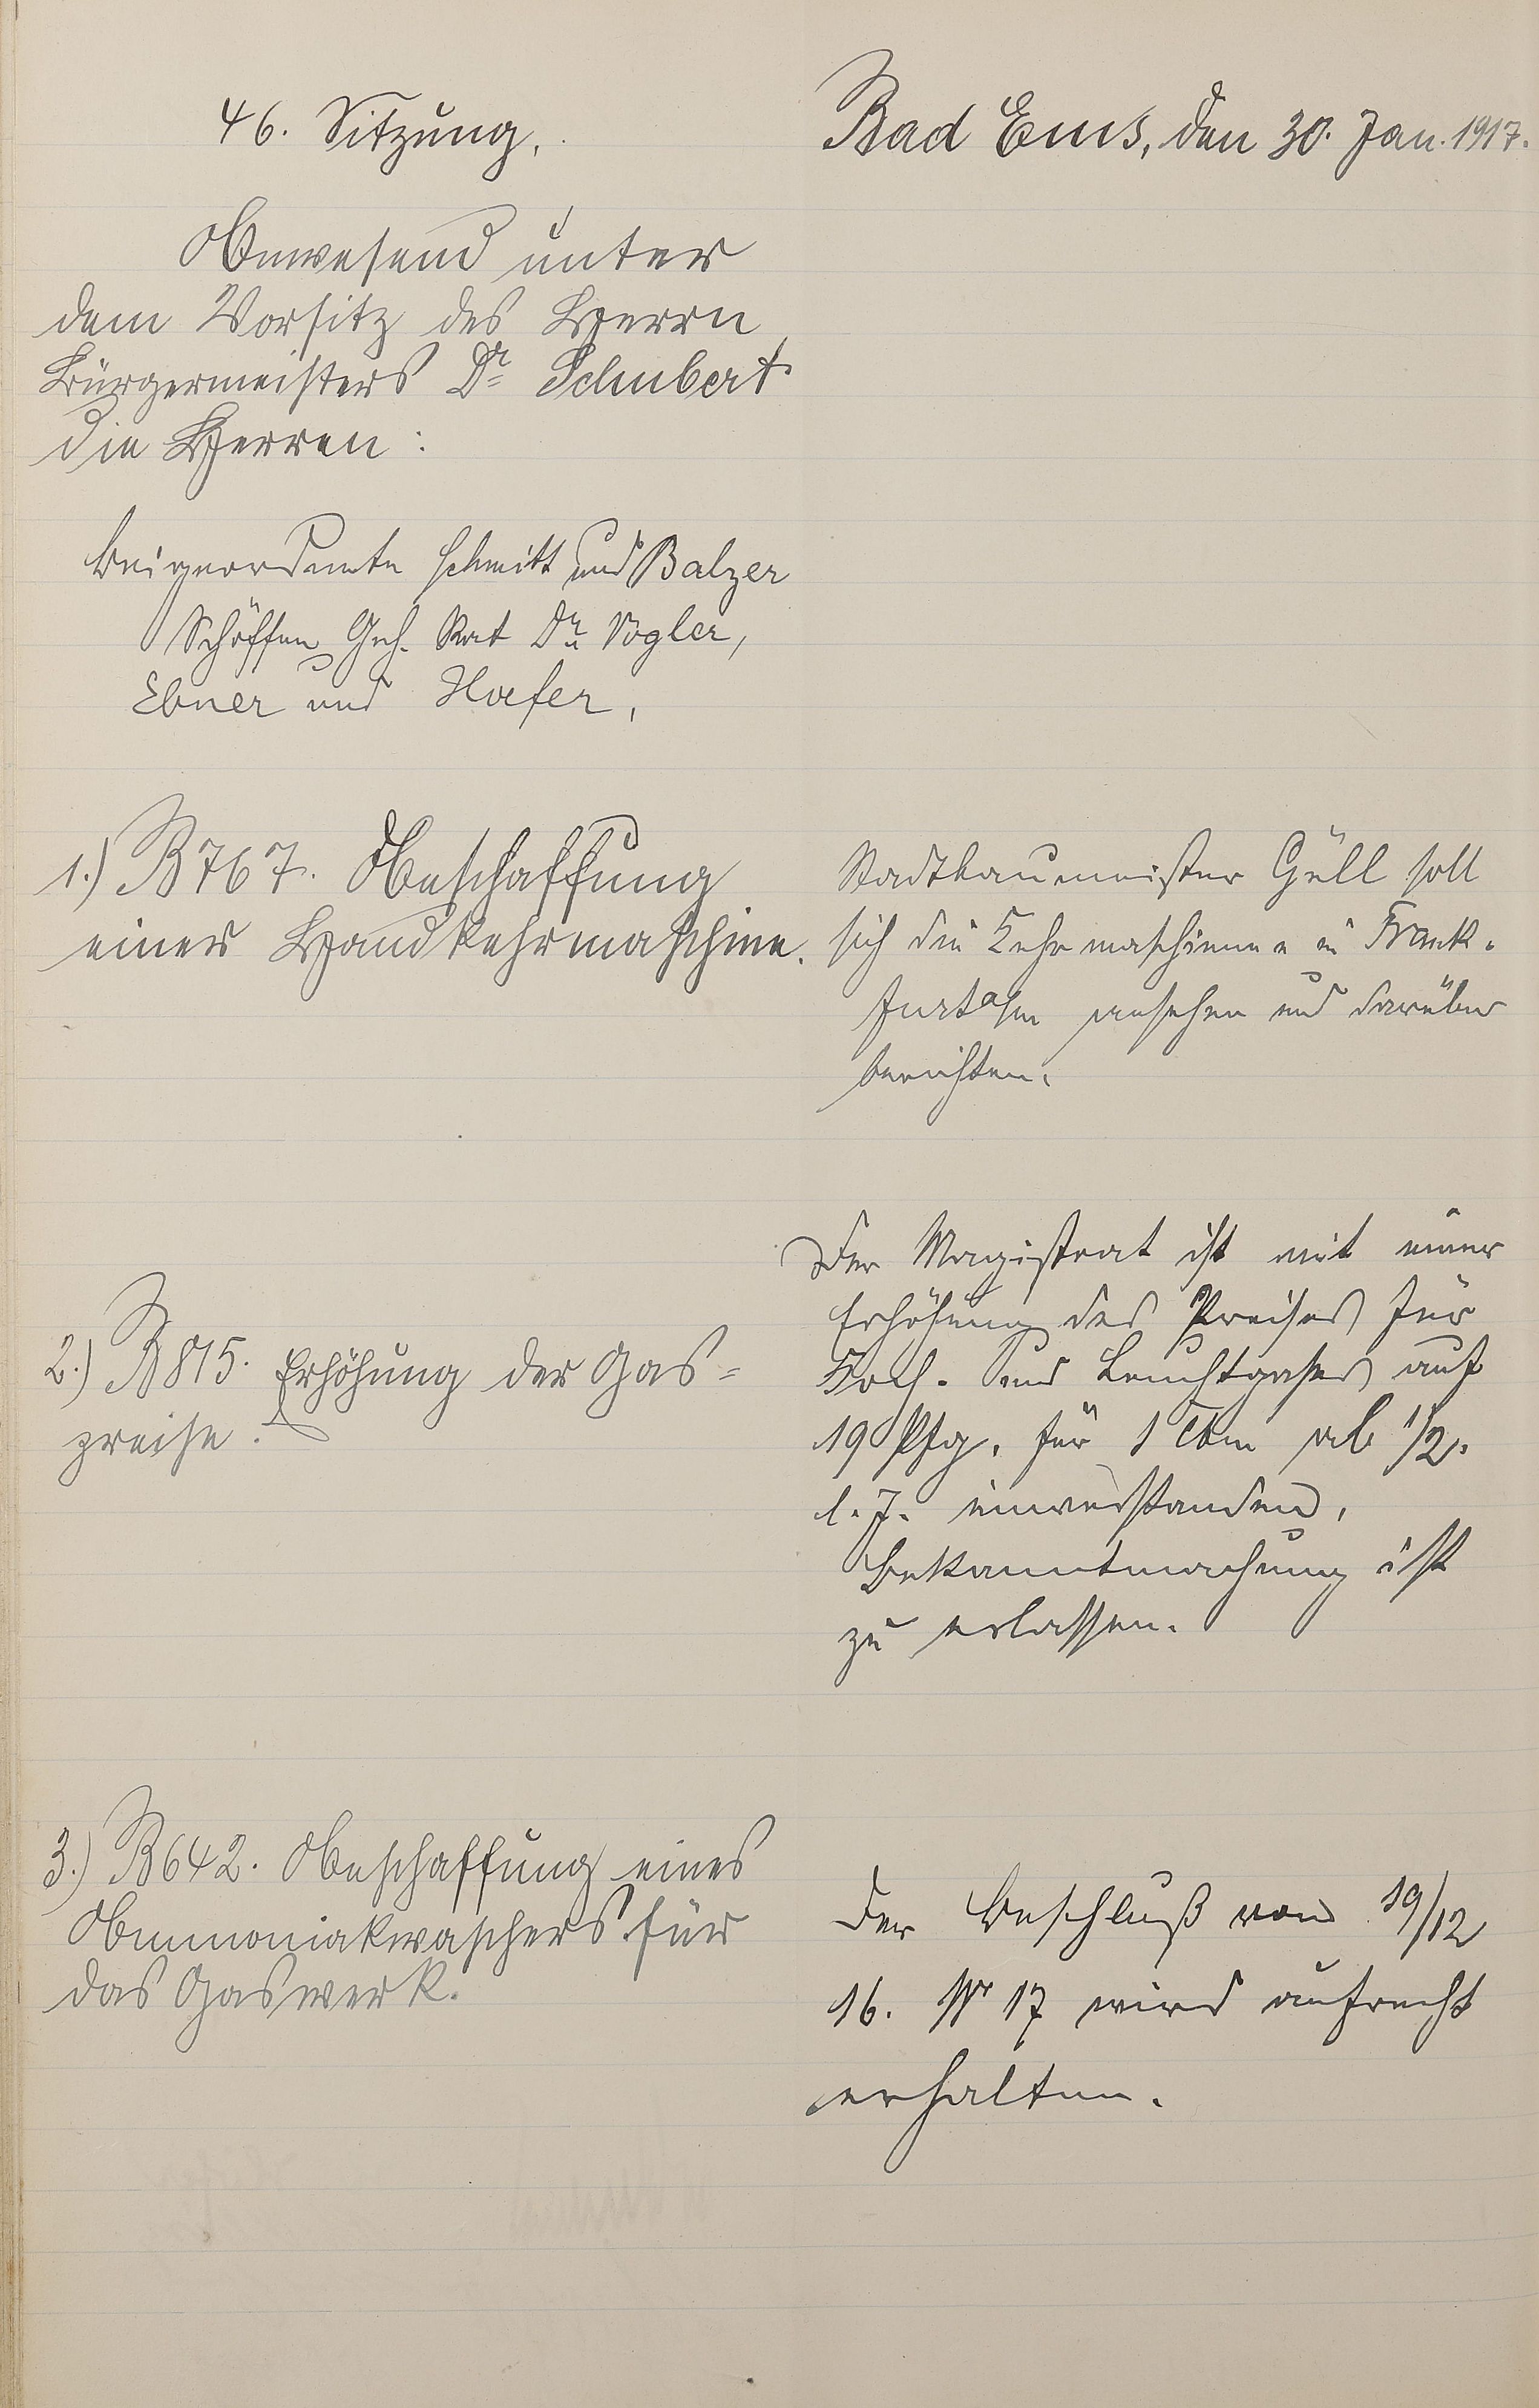 46. Sitzung.
Bad Ems, den 30. Jan. 1917.
Anwesend unter
dem Vorsitz des Herrn
Bürgermeisters Dr Schubert
die Herren:
Beigeordnete Schmitt und Balzer
Schöffen Geh. Rat Dr Vogler,
Ebner und Hofer.
1.) B 767. Anschaffung
einer Handkehrmaschine.
Stadtbaumeister Güll soll
sich die Kehrmaschinen in Frank-
furt a/m ansehen und darüber
berichten.
2.) B 815. Erhöhung der Gas-
preise.
Der Magistrat ist mit einer
Erhöhung des Preises für
Koch- und Leuchtgases auf
19 Pfg. für 1 Cbm ab 1/2.
l. J. einverstanden.
Bekanntmachung ist
zu erlassen.
3.) B 642. Anschaffung eines
Ammoniakwaschers für
das Gaswerk.
Der Beschluß vom 19/12
16. Nr 17 wird aufrecht
erhalten.